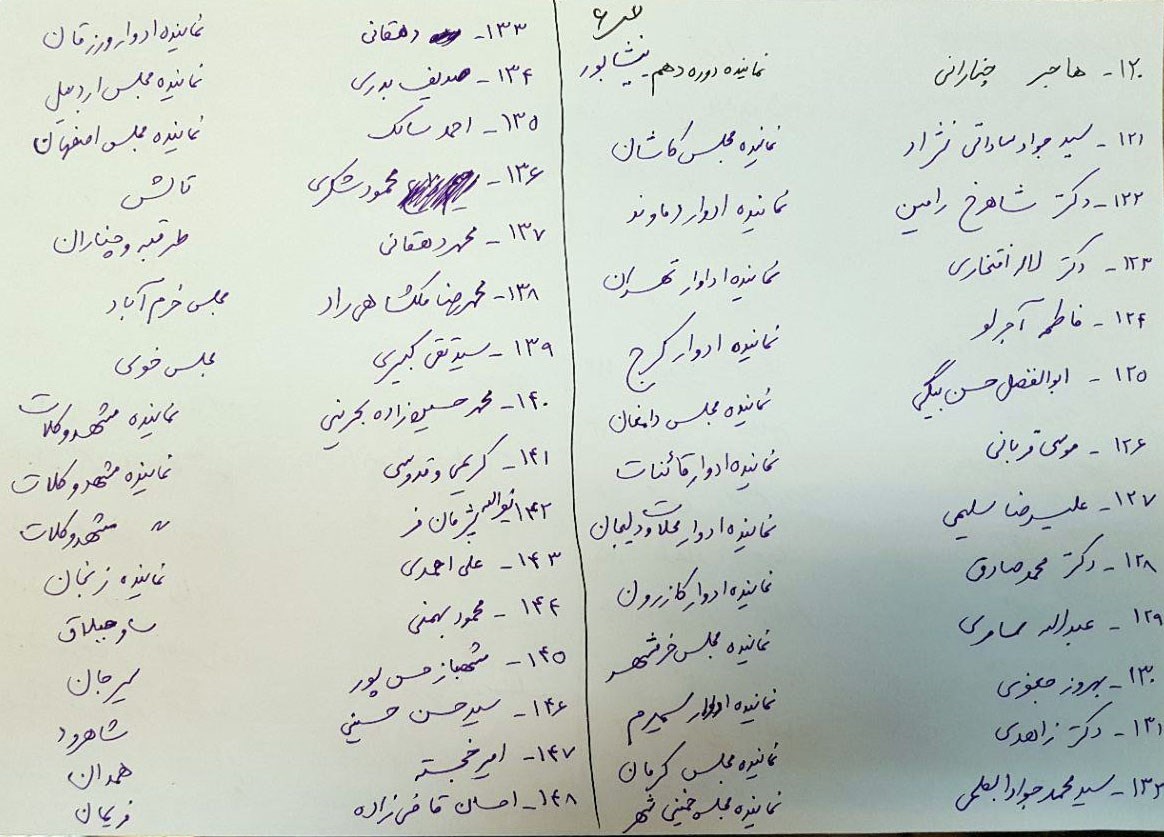 ص۶
۱۲۰- هاجر چنارانی نماینده دوره دهم نیشابور
۱۲۱- سید جواد ساداتی نژاد نماینده مجلس کاشان
۱۲۲- دکتر شاهرخ رامین نماینده ادوار دماوند
۱۲۳- دکتر لاله افتخاری نماینده ادوار تهران
۱۲۴- فاطمه آجرلو نماینده ادوار کرج
۱۲۵- ابوالفضل حسن بیگی نماینده مجلس دامغان
۱۲۶- موسی قربانی نماینده ادوار قائنات
۱۲۷- علیرضا سلیمی نماینده ادوار محلات و دلیجان
۱۲۸- دکتر محمد صادق نماینده ادوار کازرون
۱۲۹- عبدالله سامری نماینده مجلس خرمشهر
۱۳۰- بهروز جعفری نماینده ادوار سمیرم
۱۳۱- دکتر زاهدی نماینده مجلس کرمان
۱۳۲- سید محمد جواد ابطحی نماینده مجلس خمینی شهر
۱۳۳- دهقانی نماینده ادوار ورزقان
۱۳۴- صدیف بدری نماینده مجلس اردبیل
۱۳۵- احمد سالک نماینده مجلس اصفهان
۱۳۶- محمود شکری تالش
۱۳۷- محمد دهقانی طرقبه و چناران
۱۳۸- محمدرضا ملکشاهی راد مجلس خرم آباد
۱۳۹- سید تقی کبیری مجلس خوی
۱۴۰- محمد حسین زاده بحرینی نماینده مشهد و کلات
۱۴۱- کریمی و قدوسی نماینده مشهد و کلات
۱۴۲ نورالله پژمان فر " مشهد و کلات
۱۴۳- علی احمدی نماینده زنجان
۱۴۴- محمود بهمنی ساوجبلاق
۱۴۵- شهباز حسن پور سیرجان
۱۴۶- سید حسن حسینی شاهرود
۱۴۷- امیر خجسته همدان
۱۴۸- احسان قاضی زاده فریمان